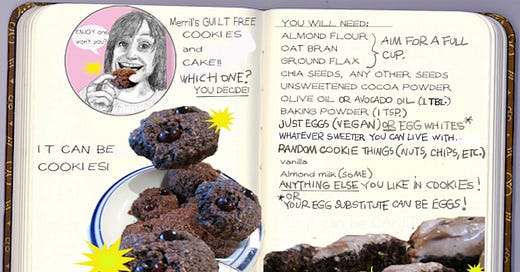 ENJOY one won't you?
Merril's GUILT FREE
COOKIES
and
CAKE!!
WHICH ONE?
YOU DECIDE!
IT CAN BE
COOKIES!
YOU WILL NEED:
ALMOND FLOUR
OAT BRAN
GROUND FLAX
AIM FOR A FULL
CUP.
CHIA SEEDS, ANY OTHER SEEDS
UNSWEETENED COCOA POWDER
OLIVE OIL OR AVOCADO OIL (1 TBL.)
BAKING POWDER (1 TSP.)
JUST EGGS (VEGAN) OR EGG WHITES*
WHATEVER SWEETER YOU CAN LIVE WITH..
RANDOM COOKIE THINGS (NUTS, CHIPS, ETC.)
vanilla
Almond milk (SOME)
ANYTHING ELSE YOU LIKE IN COOKIES!
*OR
YOUR EGG SUBSTITUTE CAN BE EGGS!